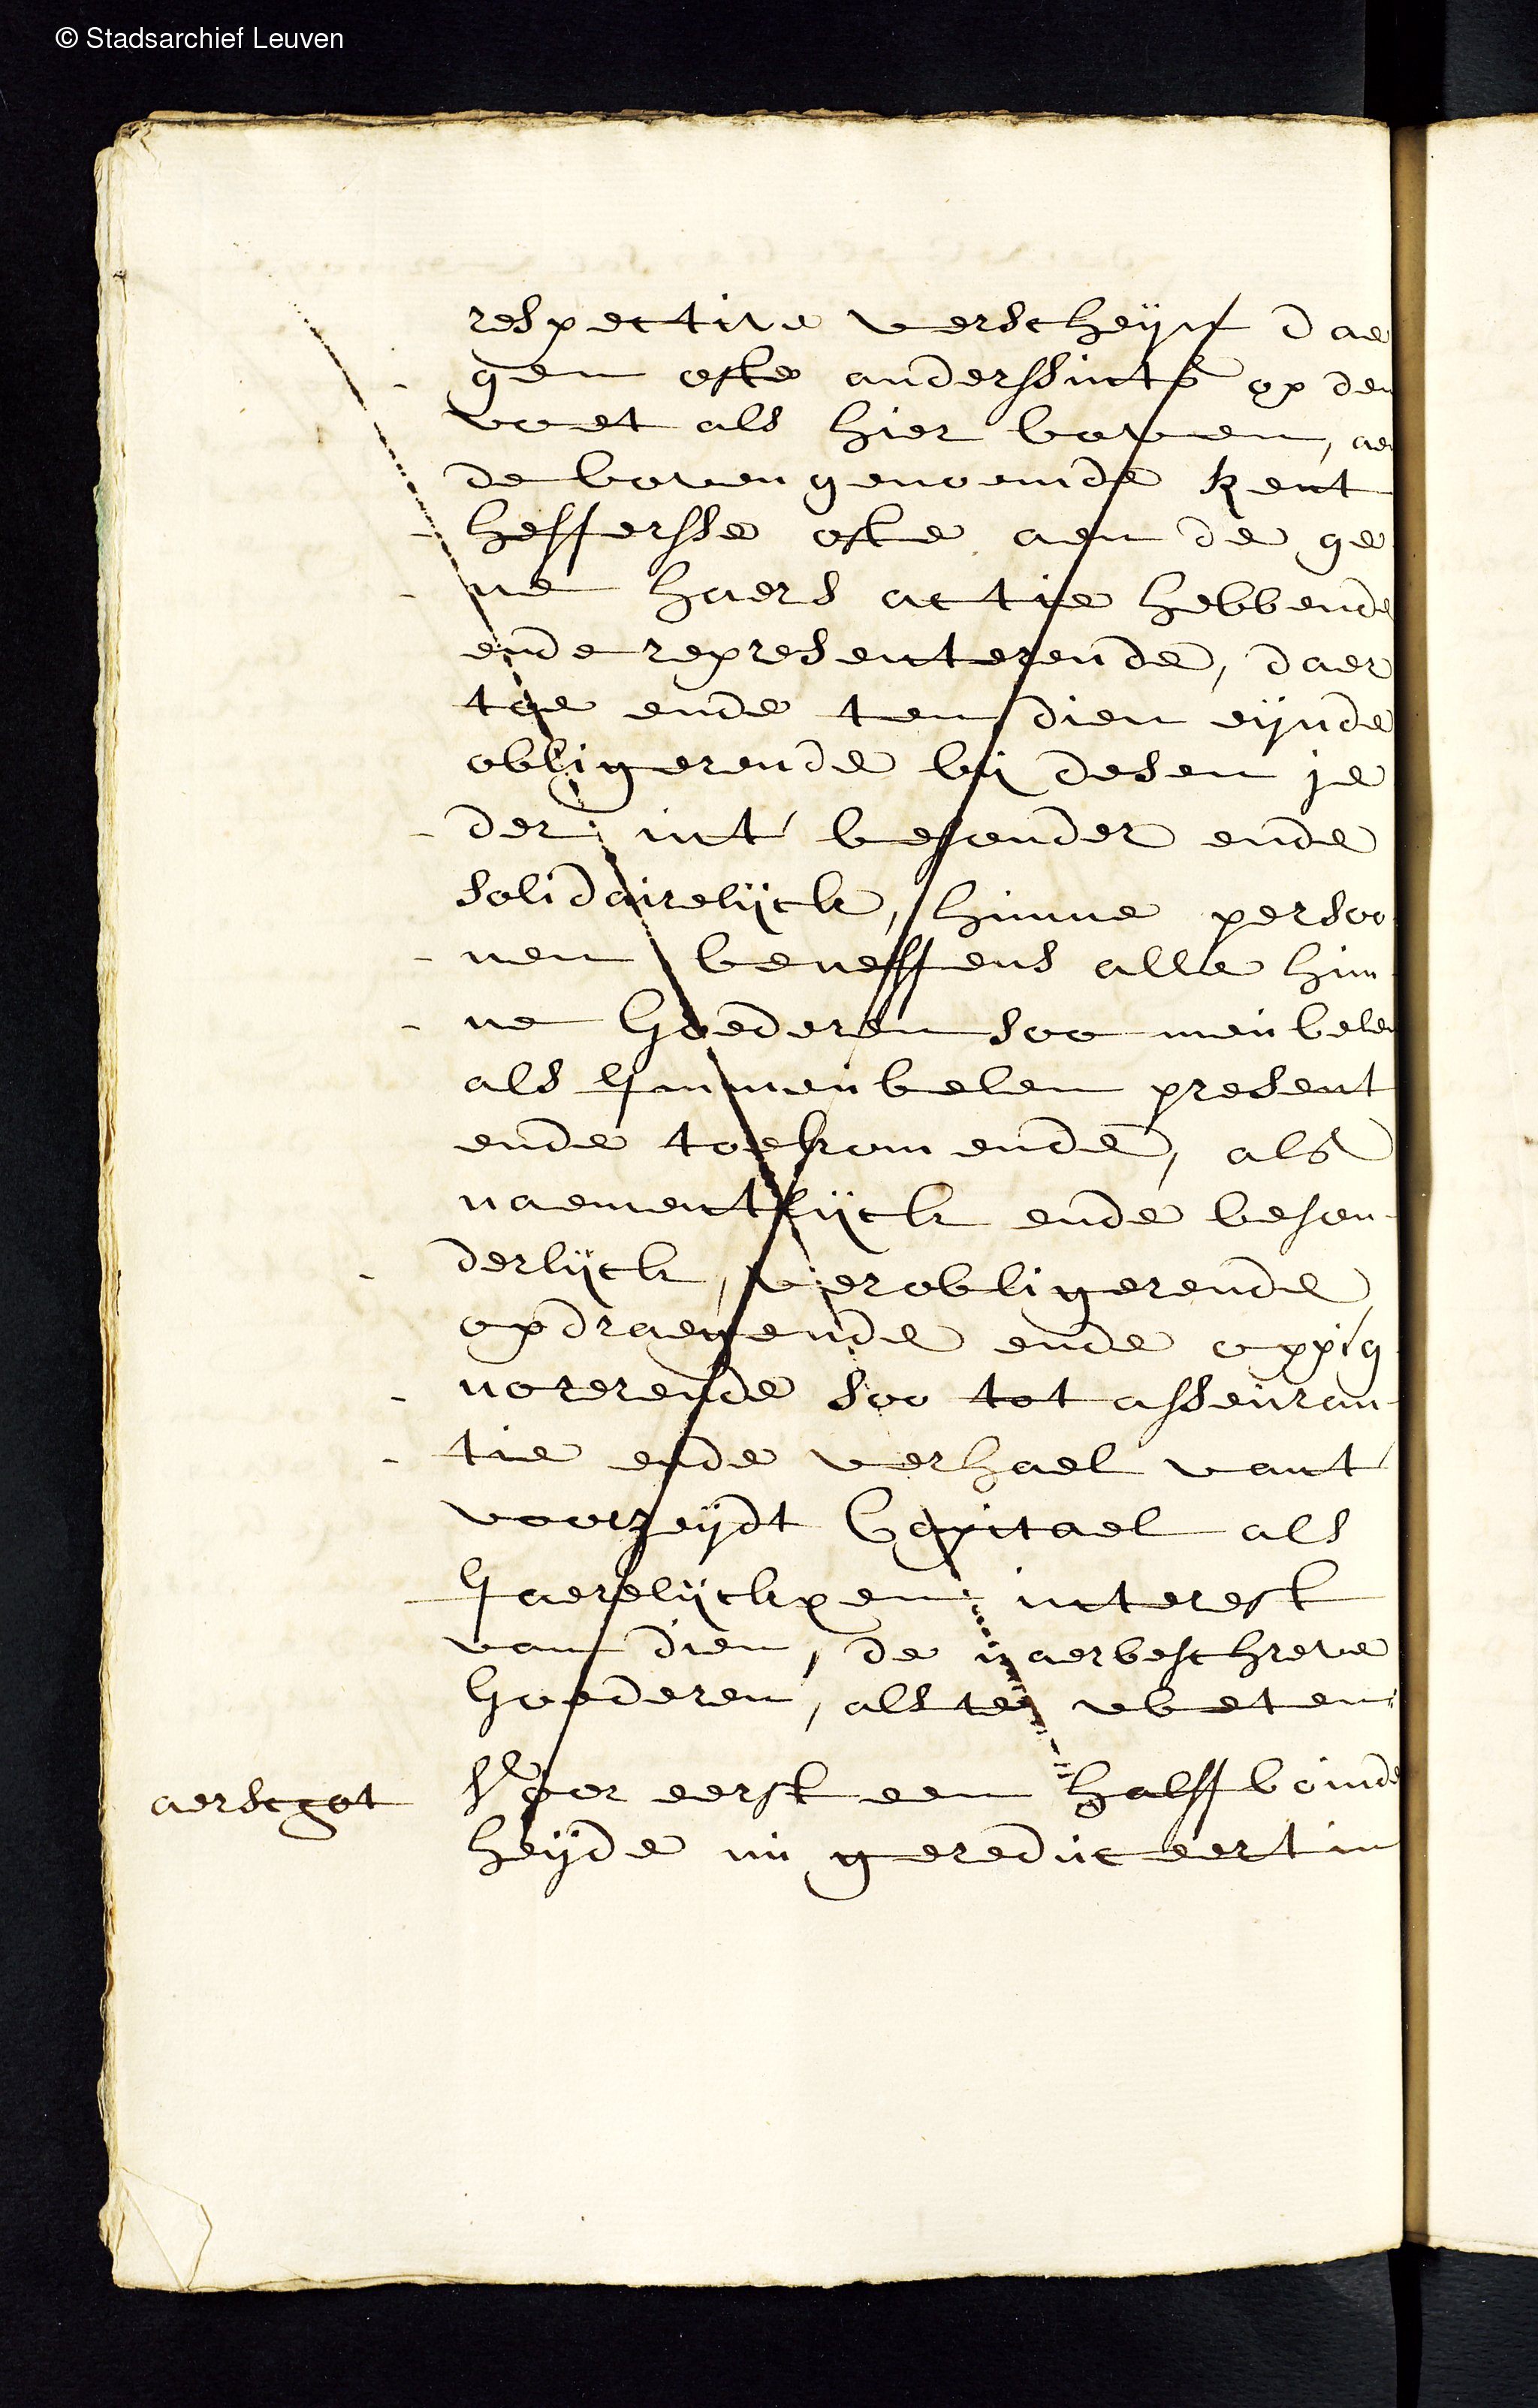 © Stadsarchief Leuven
respective verscheyn dae
gen ofte anderssints op den
voet als hier boven, aen
de bovengenoemde Rent
heffersse ofte aen de ge
ne haers actie hebbende
ende representerende, daer
toe ende ten dien eijnde
obligerende bij desen je
der int besonder ende
solidairelijck, hunne persoo
nen beneffens alle hun
ne Goederen soo meubelen
als Immeubelen present
ende toekomende, als
naementlijck ende beson-
derlijck, verobligerende,
opdraegende ende oppig
norerende soo tot asseuran-
tie ende verhael vant
voorzeijdt Capitael als
Jaerelijckxen interest
van dien, de naerbeschreve
Goederen, als te weten
aerscgot
Voor eerst een halff boinde
heijde nu gereduceert in